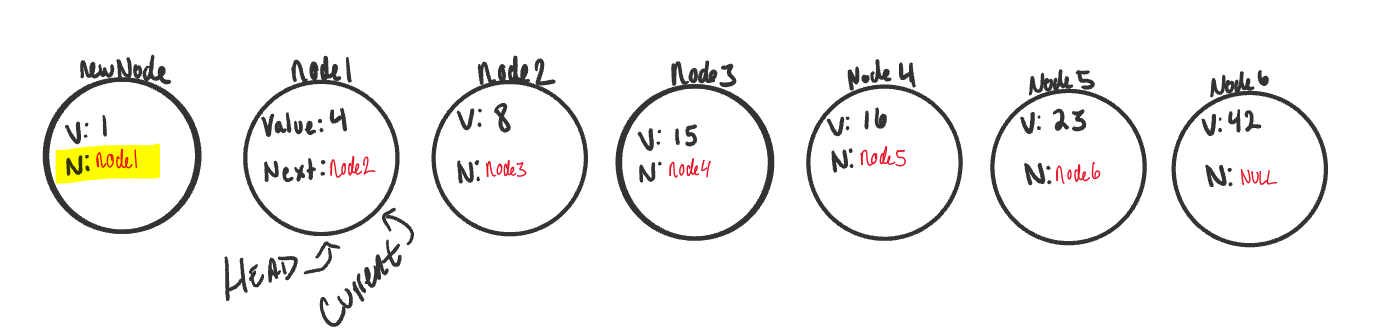 newNode
V: 1
N: node1
node1
Value: 4
Next: node2
node2
V: 8
N: node3
node3
V: 15
N: node4
Node 4
V: 16
N: node5
Node 5
V: 23
N: node6
Node6
V: 42
N: NULL
HEAD
Current